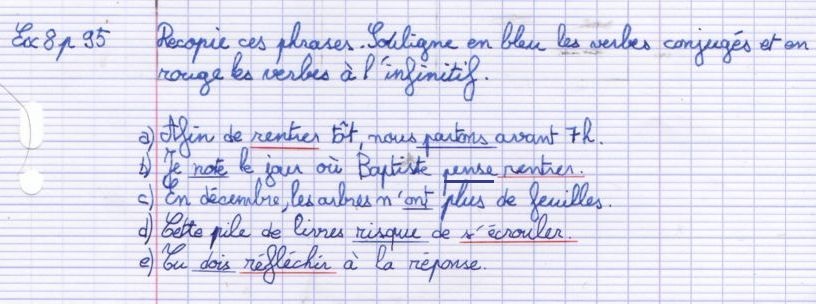 Ex 8 p 95 Recopie ces phrases. Souligne en bleu les verbes conjugués et en
rouge les verbes à l'infinitif.
a) Afin de rentrer tôt, nous partons avant 7h.
b) Je note le jour où Baptiste pense rentrer.
c) En décembre, les arbres n'ont plus de feuilles.
d) Cette pile de livres risque de s'écrouler.
e) Tu dois réfléchir à ta réponse.